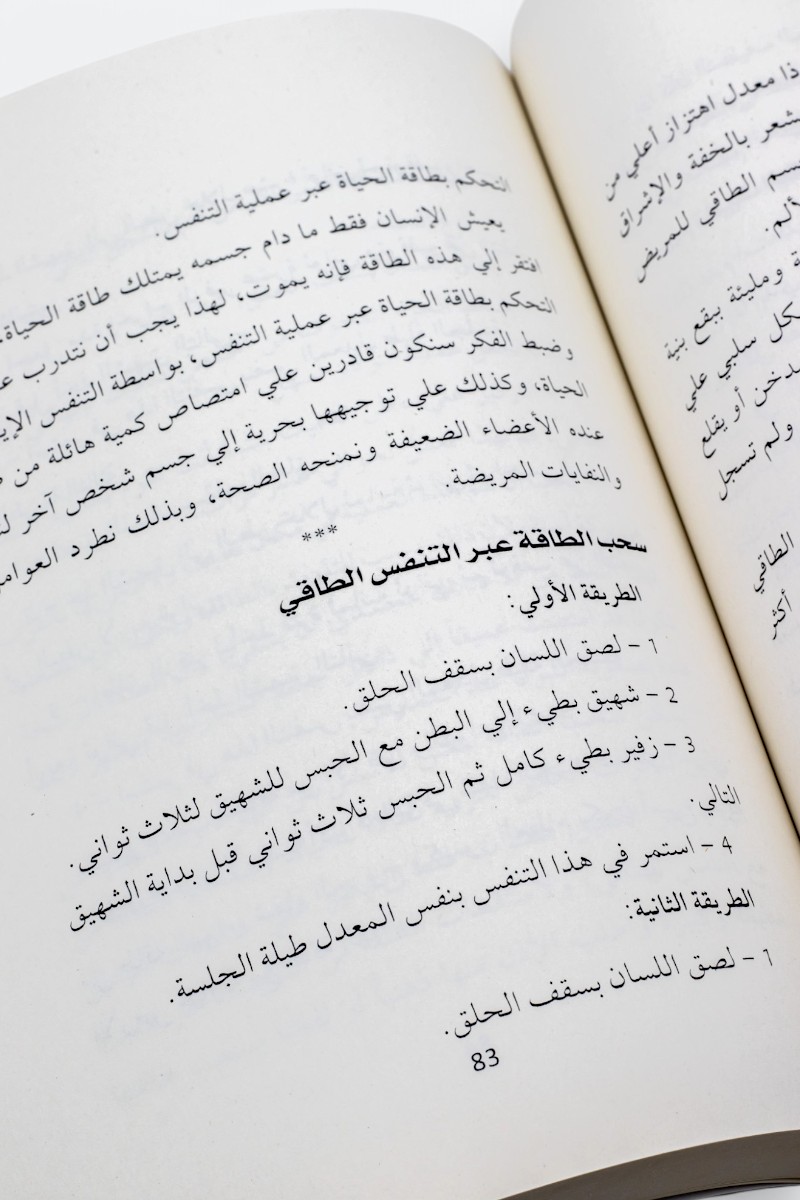 التحكم بطاقة الحياة عبر عملية التنفس.
يعيش الإنسان فقط ما دام جسمه يمتلك طاقة الحياة.
افتقر إلي هذه الطاقة فإنه يموت، لهذا يجب أن نتدرب
التحكم بطاقة الحياة عبر عملية التنفس، بواسطة التنفس
وضبط الفكر سنكون قادرين علي امتصاص كمية هائلة من
الحياة، وكذلك علي توجيهها بحرية إلي جسم شخص آخر
عنده الأعضاء الضعيفة ونمنحه الصحة، وبذلك نطرد
والنفايات المريضة.
***
سحب الطاقة عبر التنفس الطاقي
الطريقة الأولي:
1 – لصق اللسان بسقف الحلق.
2 – شهيق بطيء إلي البطن مع الحبس للشهيق لثلاث ثواني.
3 – زفير بطيء كامل ثم الحبس ثلاث ثواني قبل بداية الشهيق
التالي.
4 – استمر في هذا التنفس بنفس المعدل طيلة الجلسة.
الطريقة الثانية:
1 – لصق اللسان بسقف الحلق.
83
معدل اهتزاز أعلي من
بالخفة والإشراق
الطاقي للمريض
ومليئة ببقع بنية
سلبي علي
أو يقلع
ولم تسجل
الطاقي
أكثر